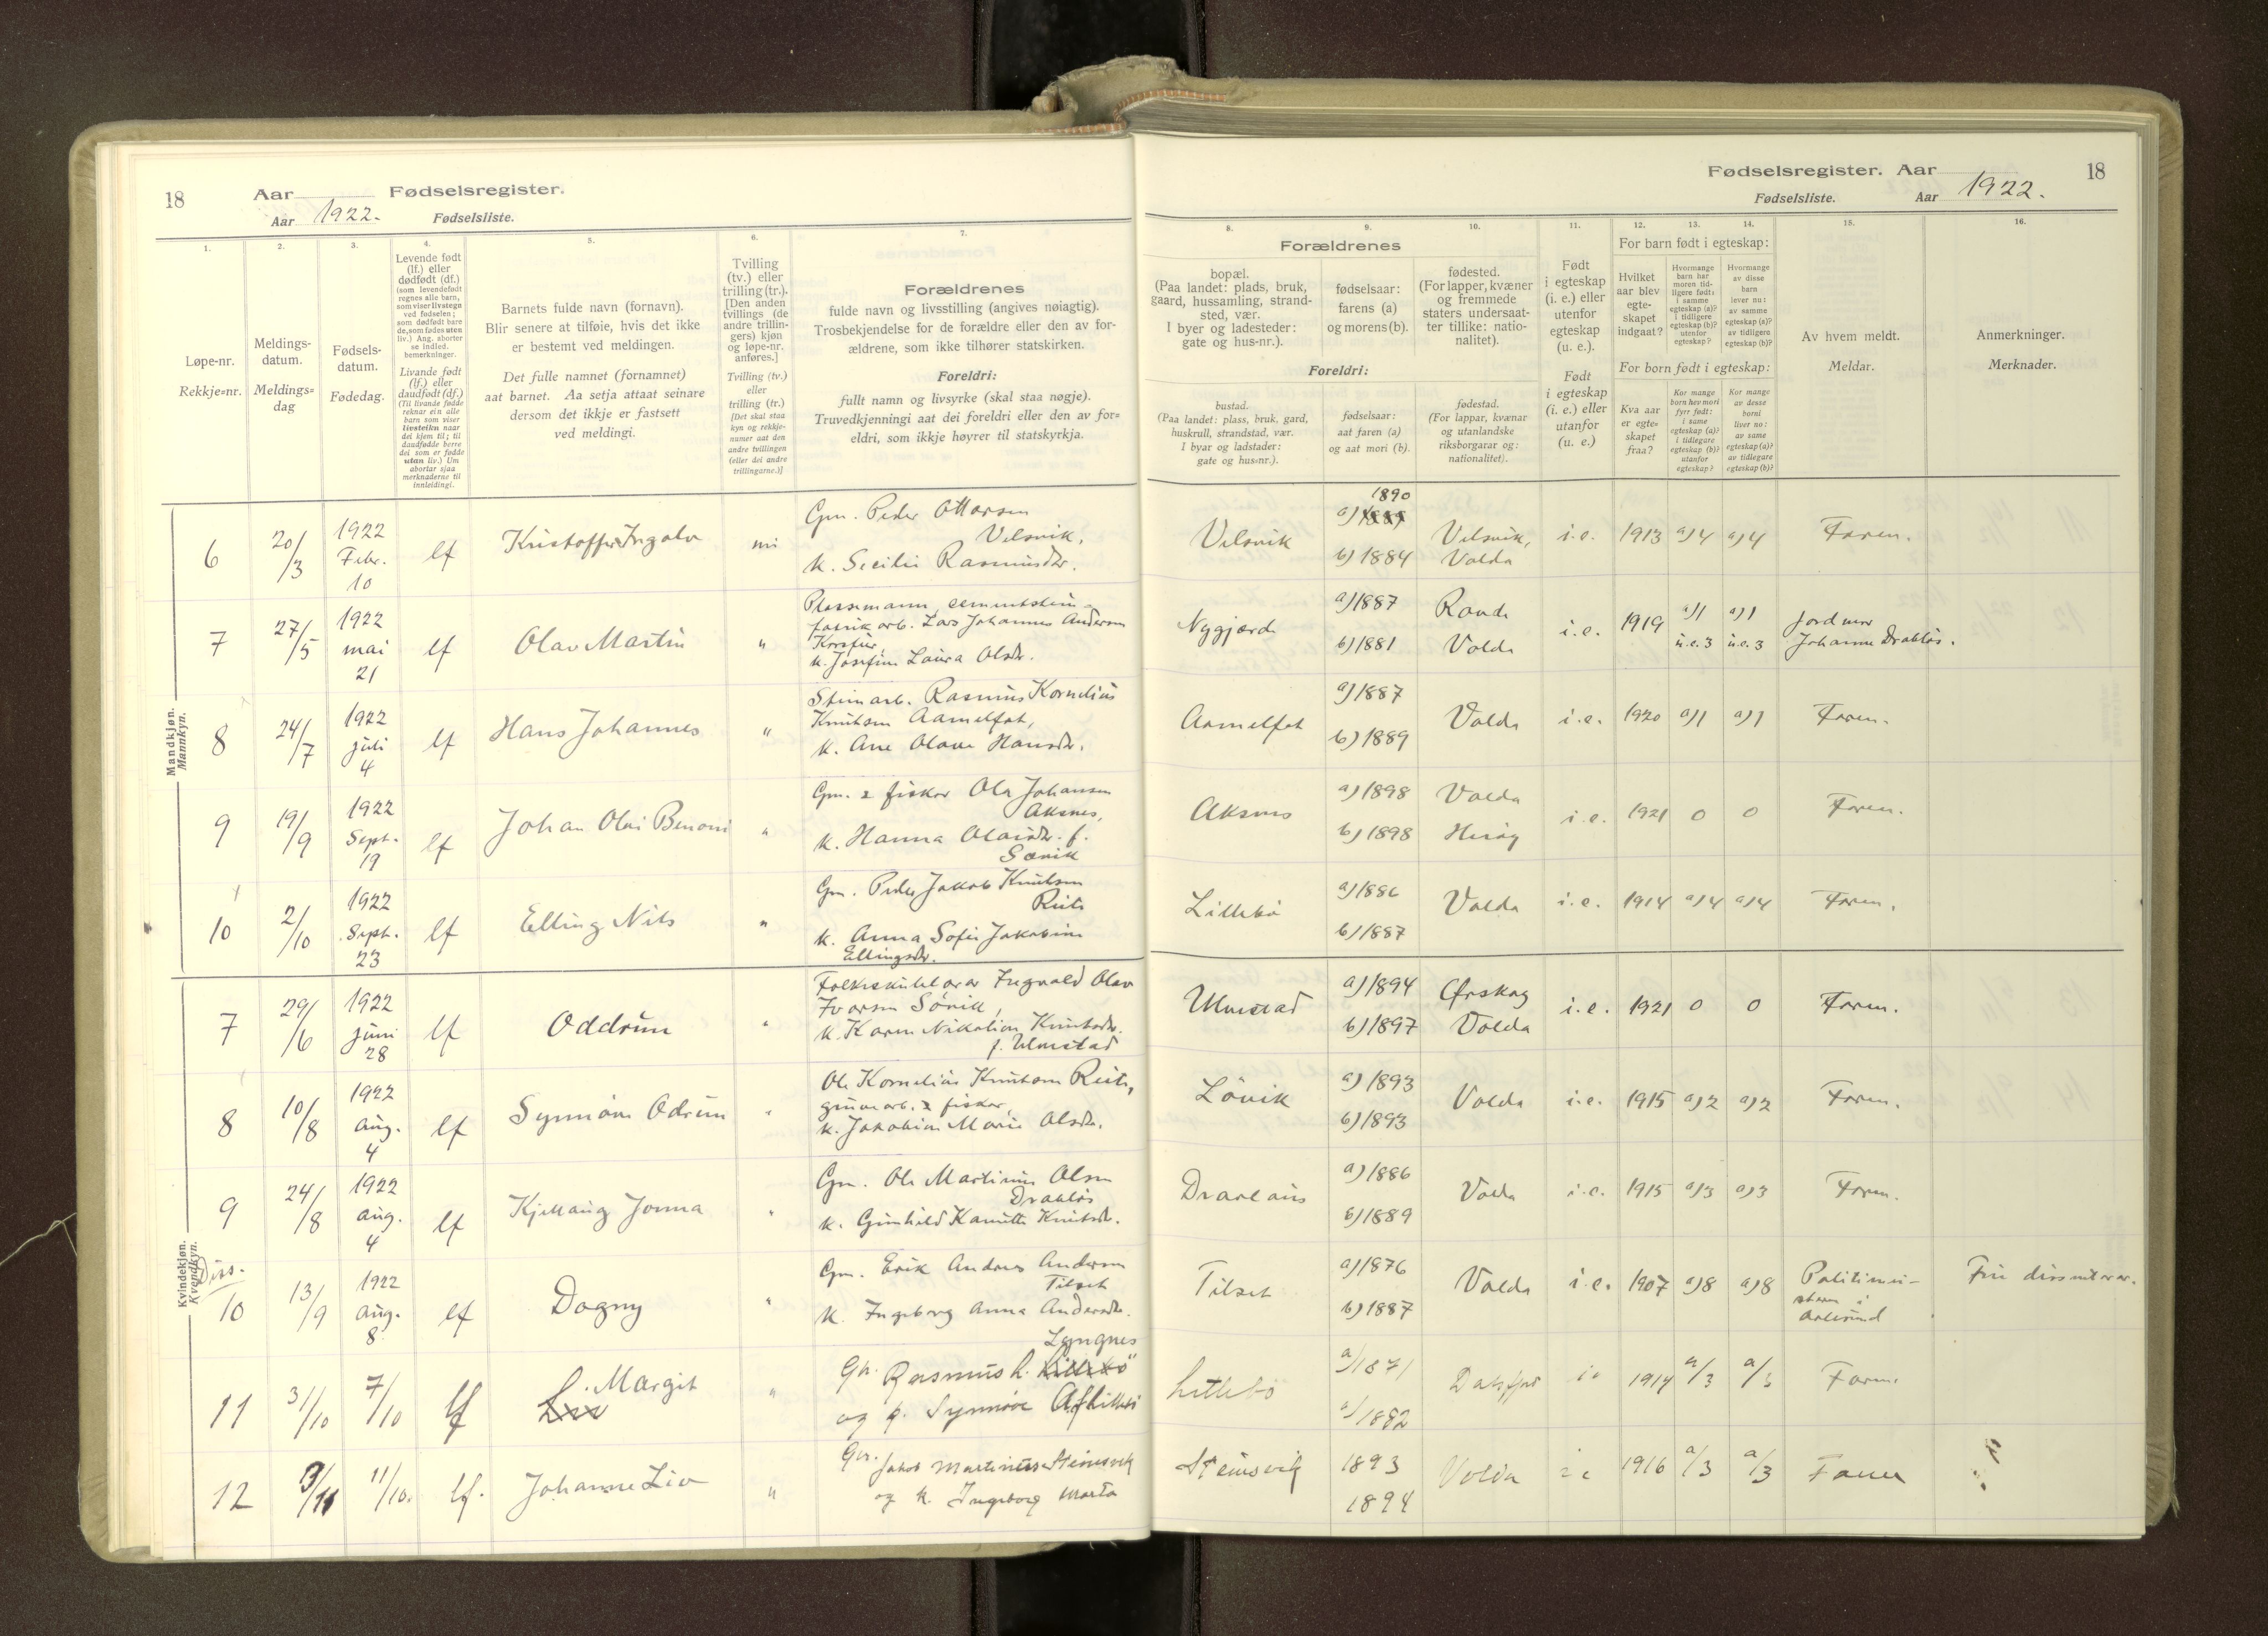 18
Aar Fødselsregister.
Aar 1922. Fødselsliste.
1.
Løpe-nr.
Rekkje=nr.
2.
Meldings-
datum.
Meldings=
dag
3.
Fødsels-
datum.
Fødedag.
4.
Levende født
(lf.) eller
dødfødt (df.)
(som levendefødt
regnes alle barn,
som viser livstegn
ved fødselen;
som dødfødt bare
de, som fødes uten
liv.) Ang. aborter
se indled.
bemerkninger.
Livande født
(lf.) eller
daudfødt (df.)
(Til livande fødde
reknar ein alle
barn som viser
livsteikn naar
dei kjem til; til
daudfødde berre
dei som er fødde
utan liv.) Um
abortar sjaa
merknaderne til
innleidingi.
5.
Barnets fulde navn (fornavn).
Blir senere at tilføie, hvis det ikke
er bestemt ved meldingen.
Det fulle namnet (fornamnet)
aat barnet. Aa setja attaat seinare
dersom det ikkje er fastsett
ved meldingi.
6.
Tvilling
(tv.) eller
trilling (tr.).
[Den anden
tvillings (de
andre trillin-
gers) kjøn
og løpe-nr.
anføres.]
Tvilling (tv.)
eller
trilling (tr.)
[Det skal staa
kyn og rekkje-
numer aat den
andre tvillingen
(eller dei andre
trillingarne.)]
7.
Forældrenes
fulde navn og livsstilling (angives nøiagtig).
Trosbekjendelse for de forældre eller den av for-
ældrene, som ikke tilhører statskirken.
Foreldri:
fullt namn og livsyrke (skal staa nøgje).
Truvedkjenningi aat dei foreldri eller den av for=
eldri, som ikkje høyrer til statskyrkja.
Mandkjøn.
Mannkyn.
6
20/3
1922
Febr.
10
lf
Kristoffer Ingolv
nei
Gm. Peder Ottarsen
Velsvik,
k. Secilie Rasmusdr.
7
27/5
1922
mai
21
lf
Olav Martin
"
Plassemann, cementstein-
fabrik arb. Lars Johannes Andersen
k. Josefine Laura Olsdr.
8
24/7
1922
juli
4
lf
Hans Johannes
"
Steinarb. Rasmus Kornelius
Knutsen Aarnelfot,
k. Ane Olave Hansdr.
9
19/9
1922
Sept.
19
lf
Johan Olai Benoni
"
Gm. & fisker Ola Johansen
Aksnes,
k. Hanna Olaisdr. f.
Sørvik
10
2/10
1922
Sept.
23
lf
Elling Nils
"
Gm. Peder Jakob Knutsen
k. Anna Sofie Jakobine
Ellingsdr.
Kvindekjøn.
Kvendkyn.
7
29/6
1922
juni
28
lf
Oddrun
"
Folkeskulelærar Ingvald Olav
Ivarsen Sørvik,
k. Karen Nikoline Knutsdr.
f. Ulvestad
8
10/8
1922
aug.
4
lf
Synnøve Odrun
"
Ole Kornelius Knutsen
gruvearb. & fisker,
k. Jakobine Marie Olsdr.
9
24/8
1922
aug.
4
lf
Kjellaug Jonna
"
Gm. Ole Martinus Olsen
Drabløs
k. Gunhild Kanutte Knutsdr.
Diss.
10
13/9
1922
aug.
8
lf
Dagny
"
Gm. Erik Andreas Andersen
Tilset
k. Ingeborg Anna Andersdr.
11
31/10
7/10
lf
Liv Margit
"
Lyngnes
Gb. Rasmus L. Lillebø
og k. Synnøve A. f Lillebø
12
3/11
11/10.
lf.
Johanne Liv
"
Gbr. Jakob Martinussen Steinsvik
og k. Ingeborg Marta
Fødselsregister. Aar 18
Fødselsliste. Aar 1922.
8.
Forældrenes
bopæl.
(Paa landet: plads, bruk,
gaard, hussamling, strand-
sted, vær.
I byer og ladesteder:
gate og hus-nr.).
Foreldri:
bustad.
(Paa landet: plass, bruk, gard,
huskrull, strandstad, vær.
I byar og ladstader:
gate og hus=nr.).
9.
fødselsaar:
farens (a)
og morens (b).
fødselsaar:
aat faren (a)
og aat mori (b).
10.
fødested.
(For lapper, kvæner
og fremmede
staters undersaat-
ter tillike: natio-
nalitet).
fødestad.
(For lappar, kvænar
og utanlandske
riksborgarar og:
nationalitet).
11.
Født
i egteskap
(i. e.) eller
utenfor
egteskap
(u. e.).
Født
i egteskap
(i. e.) eller
utanfor
(u. e.)
12.
For barn født i egteskap:
Hvilket
aar blev
egte-
skapet
indgaat?
For born født i egteskap:
Kva aar
er egte=
skapet
fraa?
13.
Hvormange
barn har
moren tid-
ligere født:
i samme
egteskap (a)?
i tidligere
egteskap (b)?
utenfor
egteskap?
Kor mange
born hev mori
fyrr født:
i same
egteskap (a)?
i tidlegare
egteskap (b)?
utanfor
egteskap?
14.
Hvormange
av disse
barn
lever nu:
av samme
egteskap (a)?
av tidligere
egteskap (b)?
Kor mange
av desse
borni
liver no:
av same
egteskap (a)?
av tidlegare
egteskap (b)?
15.
Av hvem meldt.
Meldar.
16.
Anmerkninger.
Merknader.
Velsvik
1890
a) 1889
b) 1884
Velsvik,
Volda
i.e.
1913
a) 4
a) 4
Faren.
Nygjerde
a) 1887
b) 1881
Volda
i.e.
1919
a) 1
u.e. 3
a) 1
u.e. 3
Jordmor
Johanne Drabløs.
Aarnelfot
a) 1887
b) 1889
Volda
i.e.
1920
a) 1
a) 1
Faren.
Aksnes
a) 1898
b) 1898
Volda
Herøy
i.e.
1921
0
0
Faren.
Lillebø
a) 1886
b) 1887
Volda
i.e.
1914
a) 4
a) 4
Faren.
Ulvestad
a) 1894
b) 1897
Ørskog
Volda
i.e.
1921
0
0
Faren.
Løvik
a) 1893
b) 1893
Volda
i.e.
1915
a) 2
a) 2
Faren.
a) 1886
b) 1889
Volda
i.e.
1915
a) 3
a) 3
Faren.
Tilset
a) 1876
b) 1887
Volda
i.e.
1907
a) 8
a) 8
Politimei-
steren i
Aalesund
Frie dissenterar.
Lillebø
a/ 1871
1882
Dalsfjord
ie
1914
a/3
a/3
Faren.
Steinsvik
1893
1894
Volda
i e
1916
a/3
a/3
Faren